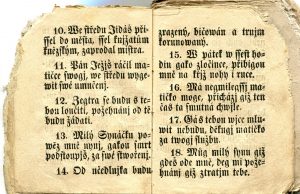 10. We středu Jidáš při-
ssel do města, ssel knjžatům
kněžským, zaprodal mistra.
11. Pán Ježjš ráčil ma-
tičce swogj, we středu wyge-
wit swé umučenj.
12. Zegtra se budu s te-
bou loučiti, požehnánj od tě
budu žádati.
13. Milý Synáčku po-
wěz mně nynj, gakau smrt
podstaupjš, za swé stwořenj.
14. Od nčedlnjka budu
zrazený, bičowán a trnjm
korunowaný.
15. W pátek w ssest ho-
din gako zločince, přibigau
mně na křjž nohy i ruce.
16. Má neymilegssj ma-
tičko moge, přicházj giž ten
čas ta smutná chwjle.
17. Gás tebau wjce mluw-
it nebudu, děkugj matičko
za twogj službu.
18. Můg milý synu giž
gdeš ode mně, deg mi pože-
hnánj giž ztratjm tebe.